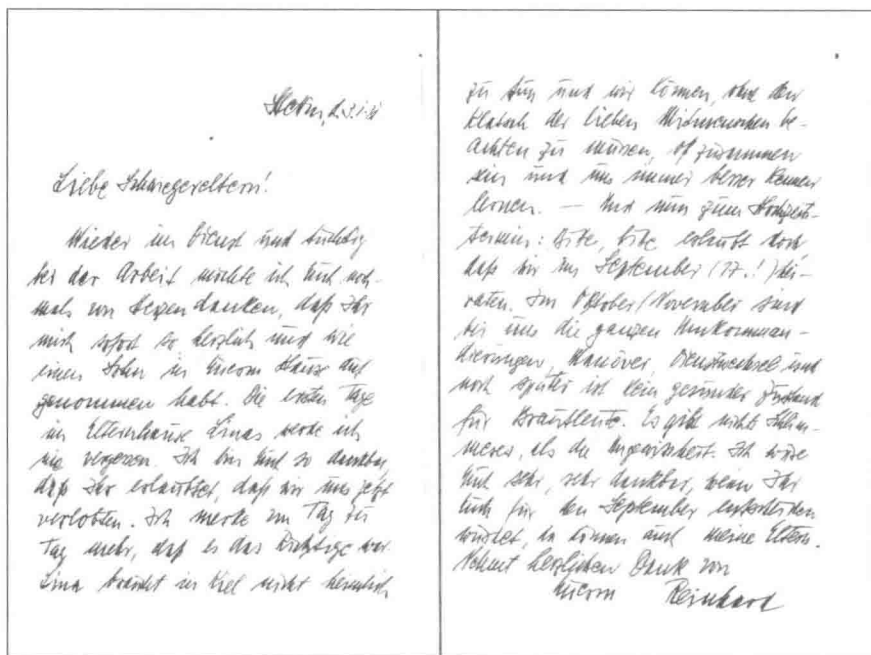 Liebe Schwiegereltern!
Wieder im Dienst und tüchtig
bei der Arbeit möchte ich Euch noch-
mals von Herzen danken, daß Ihr
mich sofort so herzlich und wie
einen Sohn in Eurem Hause auf
genommen habt. Die ersten Tage
im Elternhause Linas werde ich
nie vergessen. Ich bin Euch so dankbar,
daß Ihr erlaubtet, daß wir uns jetzt
verlobten. Ich merke von Tag zu
Tag mehr, daß es das Richtige war.
Lina braucht in Kiel nicht heimlich
zu tun und wir können, ohne den
Klatsch der lieben Mitmenschen be-
achten zu müssen, oft zusammen
sein und uns immer besser kennen
lernen. — Und nun zum Hochzeits-
termin: Bitte, bitte erlaubt doch
daß wir im September (77.!) hei-
raten. Im Oktober/November sind
bei uns die ganzen Umkomman-
dierungen, Manöver, Dienstwechsel und
noch später ist kein gesunder Zustand
für Brautleute. Es gibt nichts Schlim-
meres, als die Ungewissheit. Ich wäre
Euch sehr, sehr dankbar, wenn Ihr
Euch für den September entscheiden
würdet, da können auch meine Eltern.
Nehmt herzlichen Dank von
Eurem Reinhard